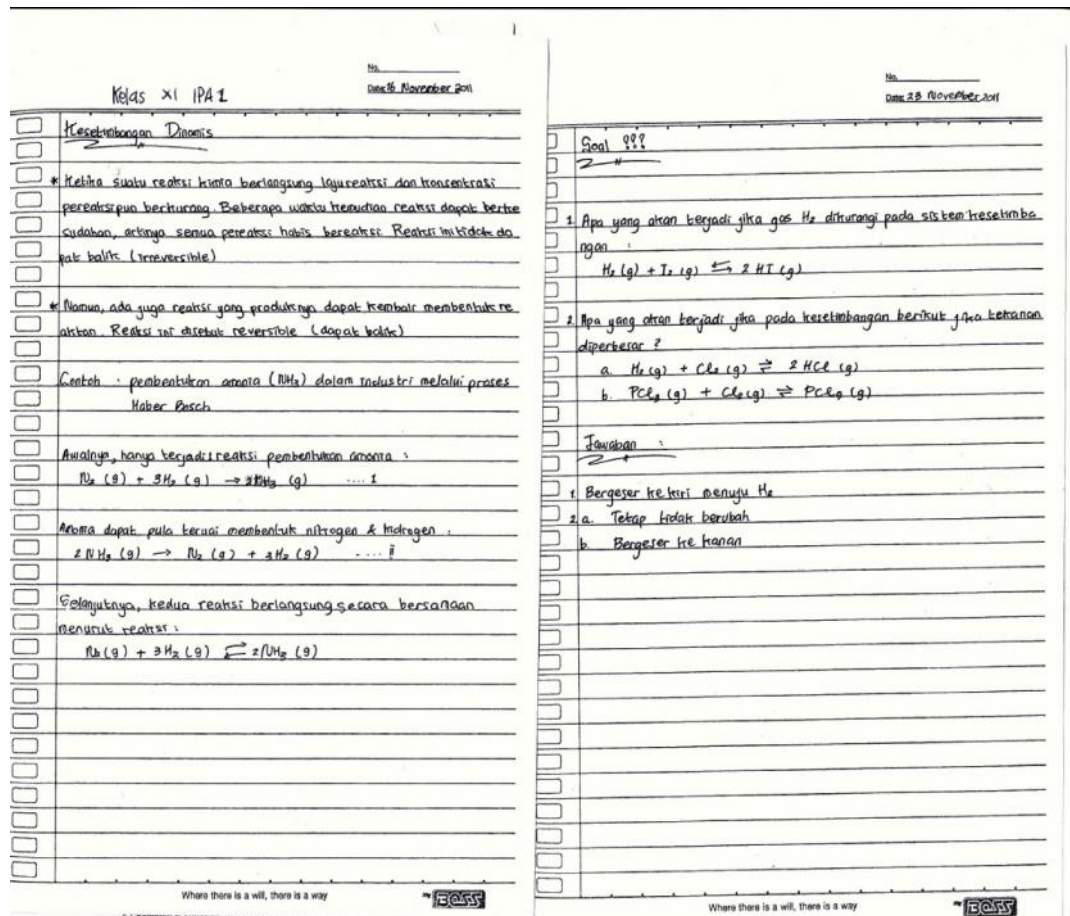 Kelas XI IPA 1
No.
Date 16 November 2011
Kesetimbangan Dinamis
* Ketika suatu reaksi kimia berlangsung laju reaksi dan konsentrasi
pereaksipun berkurang. Beberapa waktu kemudian reaksi dapat berke
sudahan, artinya semua pereaksi habis bereaksi. Reaksi ini tidak da
pat balik (irreversible)
* Namun, ada juga reaksi yang produknya dapat kembali membentuk re
aktan. Reaksi ini disebut reversible (dapat balik)
Contoh : pembentukan amonia (NH₃) dalam industri melalui proses
Haber Bosch
Awalnya, hanya terjadi reaksi pembentukan amonia :
N₂ (g) + 3H₂ (g) → 2NH₃ (g) .... 1
Amonia dapat pula terurai membentuk nitrogen & hidrogen :
2 NH₃ (g) → N₂ (g) + 3H₂ (g) .... ii
Selanjutnya, kedua reaksi berlangsung secara bersamaan
menurut reaksi :
N₂(g) + 3H₂ (g) ⇄ 2NH₃ (g)
Where there is a will, there is a way
BOSS
No.
Date 23 November 2011
Soal ???
1. Apa yang akan terjadi jika gas H₂ dikurangi pada sistem kesetimba
ngan :
H₂ (g) + I₂ (g) ⇆ 2 HI (g)
2. Apa yang akan terjadi jika pada kesetimbangan berikut jika tekanan
diperbesar ?
a. H₂ (g) + Cl₂ (g) ⇄ 2 HCl (g)
b. PCl₃ (g) + Cl₂ (g) ⇄ PCl₅ (g)
Jawaban :
1. Bergeser ke kiri menuju H₂
2. a. Tetap tidak berubah
b. Bergeser ke kanan
Where there is a will, there is a way
BOSS